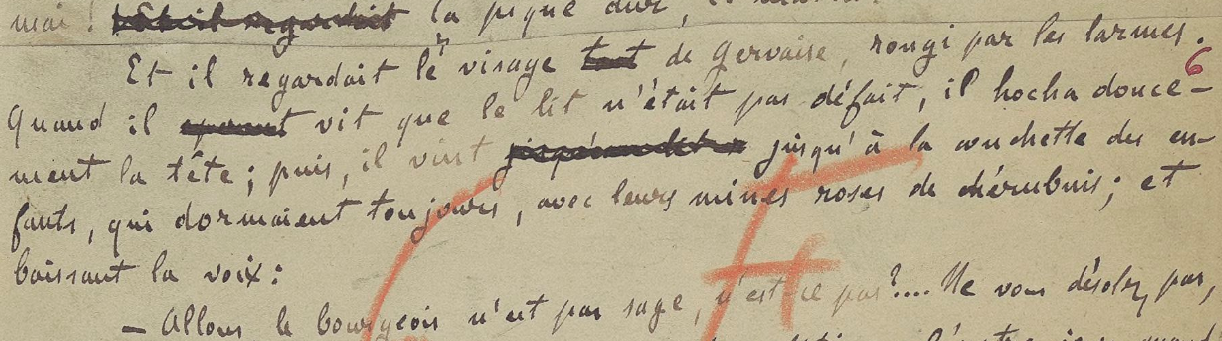 moi ! Et il regardait la pique dur,
Et il regardait le visage tout de Gervaise, rougi par les larmes.
6
Quand il vit que le lit n'était pas défait, il hocha douce-
ment la tête ; puis, il vint jusqu'au lit jusqu'à la couchette des en-
fants, qui dormaient toujours, avec leurs mines roses de chérubins ; et
baissant la voix :
— Allons le bourgeois n'est pas sage, n'est-ce pas ?.... Ne vous désolez pas,